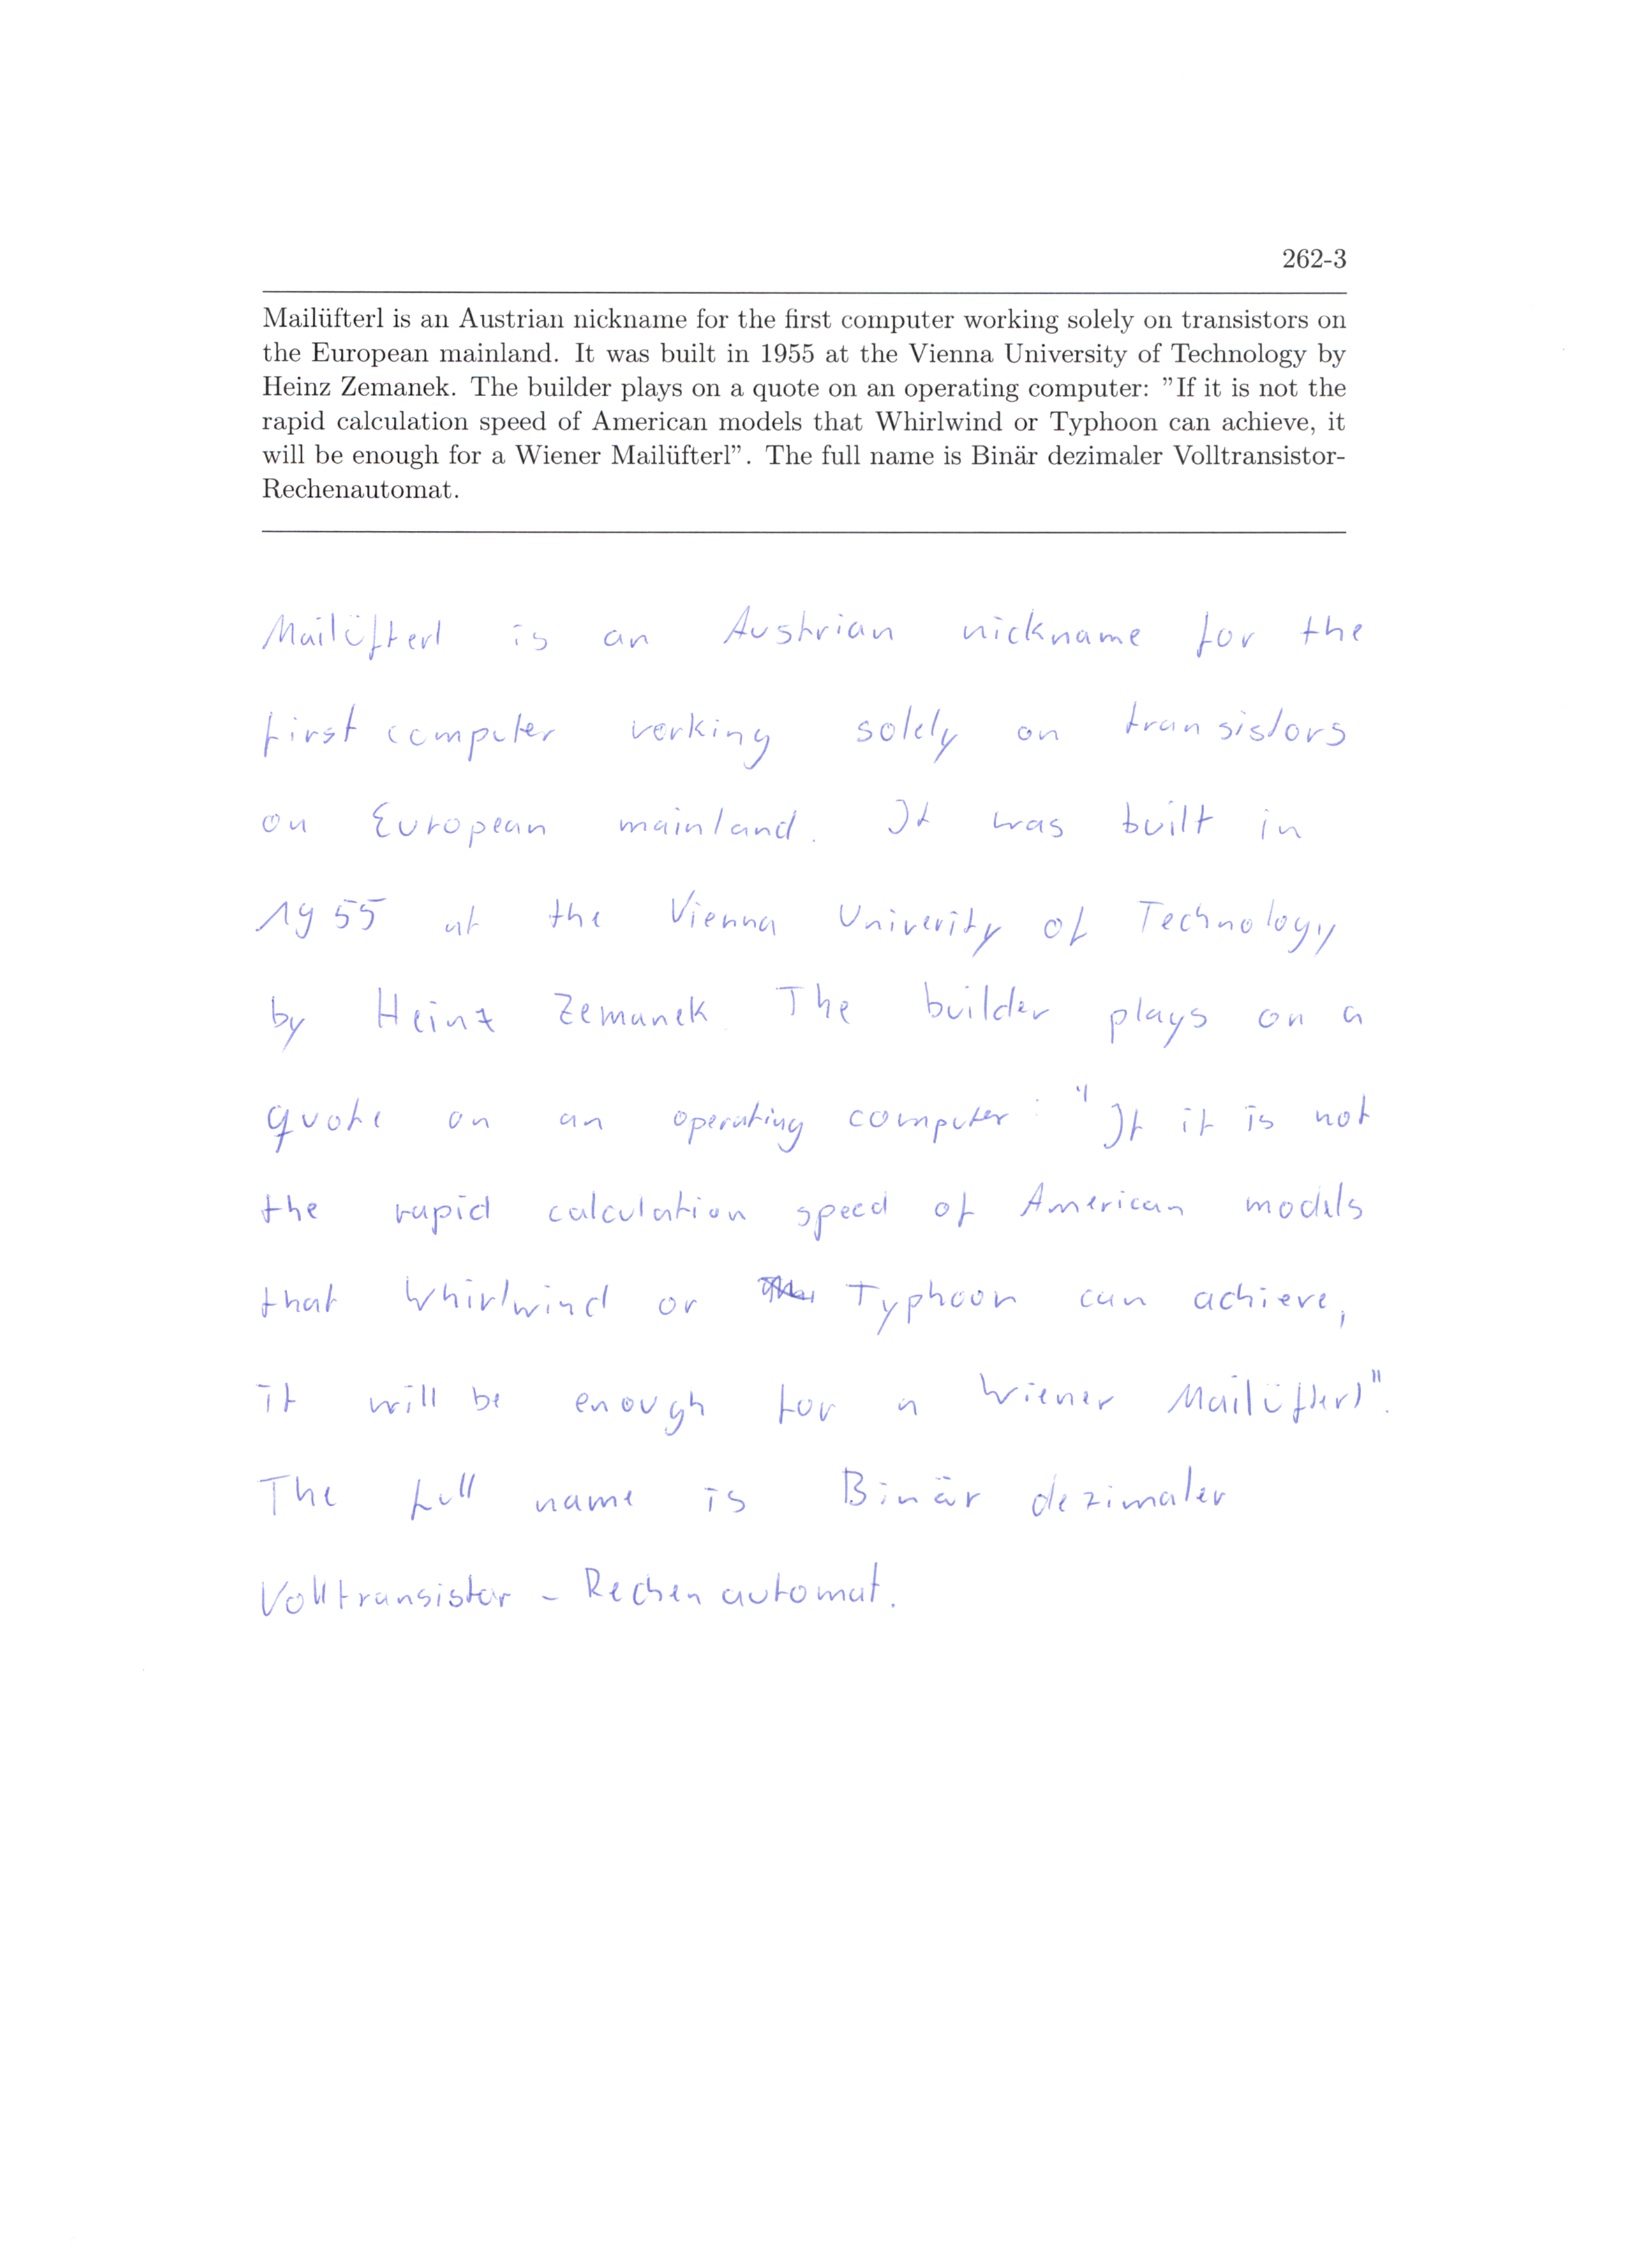 262-3
Mailüfterl is an Austrian nickname for the first computer working solely on transistors on
the European mainland. It was built in 1955 at the Vienna University of Technology by
Heinz Zemanek. The builder plays on a quote on an operating computer: ”If it is not the
rapid calculation speed of American models that Whirlwind or Typhoon can achieve, it
will be enough for a Wiener Mailüfterl”. The full name is Binär dezimaler Volltransistor-
Rechenautomat.
Mailüfterl is an Austrian nickname for the
first computer working solely on transistors
on European mainland. It was built in
1955 at the Vienna Univerity of Technology
by Heinz Zemanek. The builder plays on a
quote on an operating computer: "If it is not
the rapid calculation speed of American models
that Whirlwind or Typhoon can achieve,
it will be enough for a Wiener Mailüfterl".
The full name is Binär dezimaler
Volltransistor - Rechenautomat.